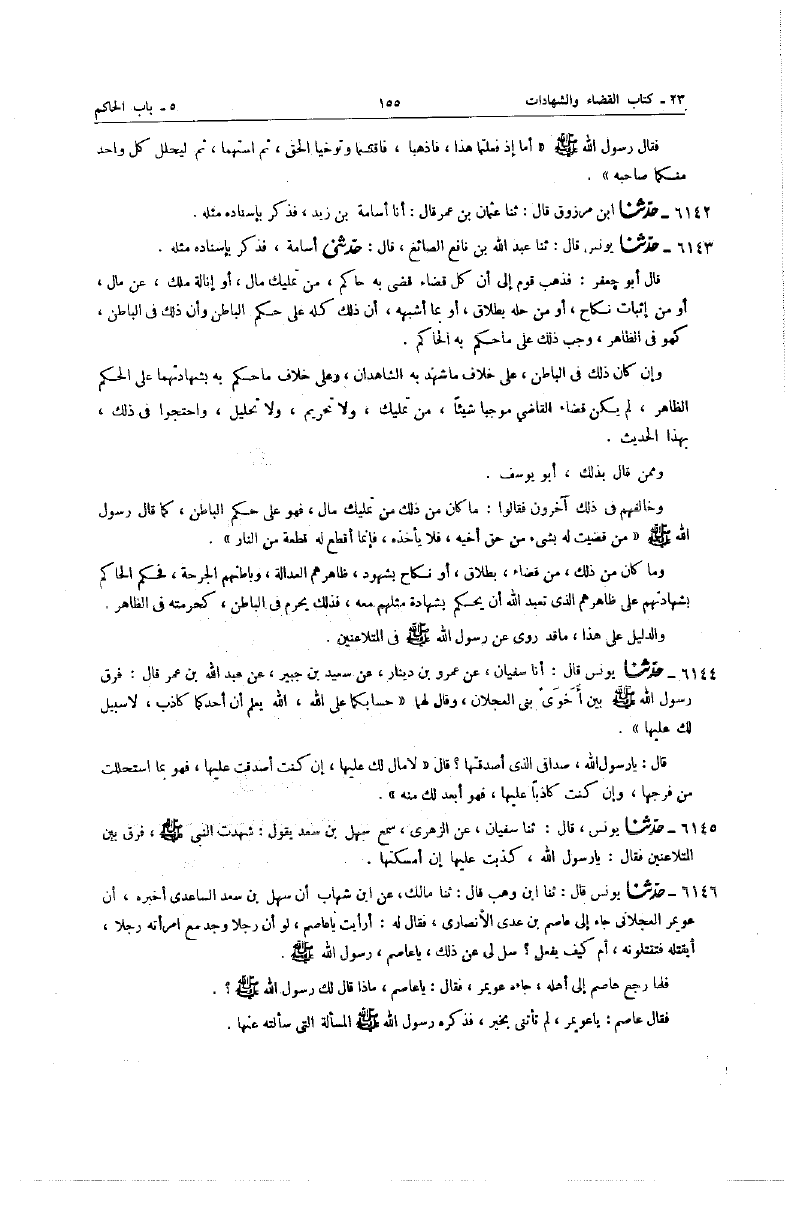 ٢٣ - كتاب القضاء والشهادات ١٥٥ ٥ - باب الحاكم
فقال رسول الله ﷺ « أما إذ فعلتما هذا ، فاذهبا ، فاقتسما وتوخيا الحق ، ثم استهما ، ثم ليحلل كل واحد
منكما صاحبه » .
٦١٤٢ - حدثنا ابن مرزوق قال : ثنا عثمان بن عمر قال : أنا أسامة بن زيد ، فذكر بإسناده مثله .
٦١٤٣ - حدثنا يونس قال : ثنا عبد الله بن نافع الصائغ ، قال : حدثنى أسامة ، فذكر بإسناده مثله .
قال أبو جعفر : فذهب قوم إلى أن كل قضاء قضى به حاكم ، من تمليك مال ، أو إزالة ملك ، عن مال ،
أو من إثبات نكاح ، أو من حله بطلاق ، أو بما أشبهه ، أن ذلك كله على حكم الباطن وأن ذلك فى الباطن ،
كهو فى الظاهر ، وجب ذلك على ماحكم به الحاكم .
وإن كان ذلك فى الباطن ، على خلاف ماشهد به الشاهدان ، وعلى خلاف ماحكم به بشهادتهما على الحكم
الظاهر ، لم يكن قضاء القاضي موجبا شيئاً ، من تمليك ، ولا تحريم ، ولا تحليل ، واحتجوا فى ذلك ،
بهذا الحديث .
وممن قال بذلك ، أبو يوسف .
وخالفهم فى ذلك آخرون فقالوا : ماكان من ذلك من تمليك مال ، فهو على حكم الباطن ، كما قال رسول
الله ﷺ « من قضيت له بشىء من حق أخيه ، فلا يأخذه ، فإنما أقطع له قطعة من النار » .
وما كان من ذلك ، من قضاء ، بطلاق ، أو نكاح بشهود ، ظاهرهم العدالة ، وباطنهم الجرحة ، فحكم الحاكم
بشهادتهم على ظاهرهم الذى تعبد الله أن يحكم بشهادة مثلهم معه ، فذلك يحرم فى الباطن ، كحرمته فى الظاهر .
والدليل على هذا ، ماقد روى عن رسول الله ﷺ فى المتلاعنين .
٦١٤٤ - حدثنا يونس قال : أنا سفيان ، عن عمرو بن دينار ، عن سعيد بن جبير ، عن عبد الله بن عمر قال : فرق
رسول الله ﷺ بين أَخَوَىْ بنى العجلان ، وقال لهما « حسابكما على الله ، الله يعلم أن أحدكما كاذب ، لاسبيل
لك عليها » .
قال : يارسول الله ، صداقى الذى أصدقتها ؟ قال « لامال لك عليها ، إن كنت أصدقت عليها ، فهو بما استحللت
من فرجها ، وإن كنت كاذباً عليها ، فهو أبعد لك منه » .
٦١٤٥ - حدثنا يونس ، قال : ثنا سفيان ، عن الزهرى ، سمع سهل بن سعد يقول : شهدت النبى ﷺ ، فرق بين
المتلاعنين فقال : يارسول الله ، كذبت عليها إن أمسكتها .
٦١٤٦ - حدثنا يونس قال : ثنا ابن وهب قال : ثنا مالك ، عن ابن شهاب أن سهل بن سعد الساعدى أخبره ، أن
عويمر العجلانى جاء إلى عاصم بن عدى الأنصارى ، فقال له : أرأيت ياعاصم ، لو أن رجلا وجد مع امرأته رجلا ،
أيقتله فتقتلونه ، أم كيف يفعل ؟ سل لى عن ذلك ، ياعاصم ، رسول الله ﷺ .
فلما رجع عاصم إلى أهله ، جاءه عويمر ، فقال : ياعاصم ، ماذا قال لك رسول الله ﷺ ؟ .
فقال عاصم : ياعويمر ، لم تأتنى بخير ، فذكره رسول الله ﷺ المسألة التى سألته عنها .